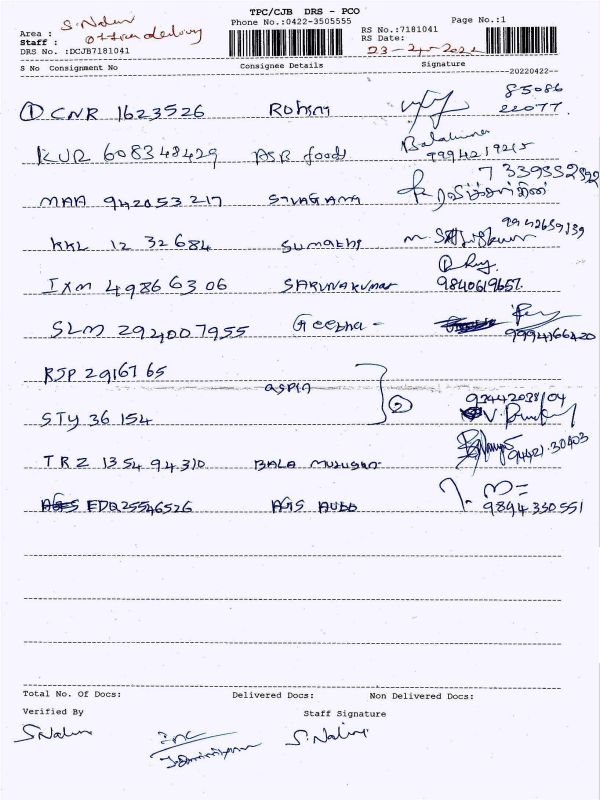 TPC/CJB DRS - PCO
Phone No.:0422-3505555 Page No.:1
Area : S. Nalin
Staff :
DRS No. :DCJB7181041
RS No.:7181041
RS Date: 23-4-2022
S No Consignment No Consignee Details Signature
--20220422--
① CNR 1623526 Rohini 85086
22077
KUR 608348429 ASR foods
9994219215
MAA 942053217 7339332592
KKL 12 32 684 Sumathi 9942659139
IXM 49866306 SARUNA Kumar 9840619657
SLM 2924007955 Geetha - 9994166420
RJP 2916765
aspin ② 92442038/04
STY 36 154
TRZ 1354 94310 BALA Murugan 94421.30403
EDQ25546526 AGS AUTO 9894330551
Total No. Of Docs: Delivered Docs: Non Delivered Docs:
Verified By Staff Signature
S.Nalin S.Nalin